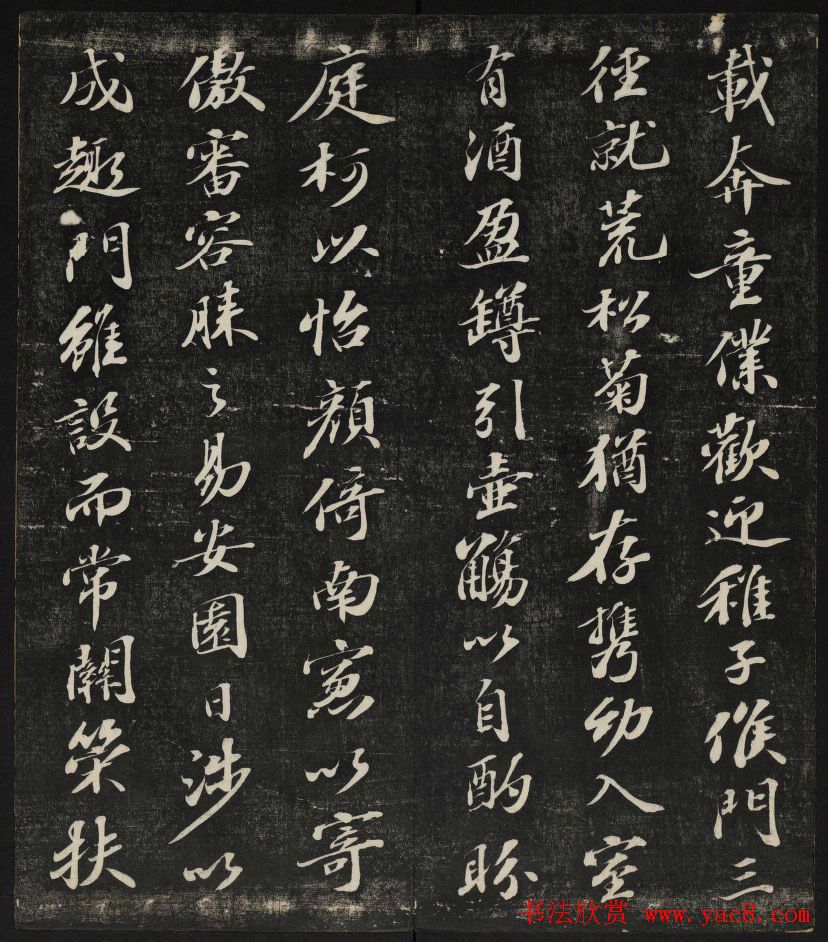 載奔童僕歡迎稚子候門三
徑就荒松菊猶存携幼入室
有酒盈罇引壺觴以自酌眄
庭柯以怡顏倚南窓以寄
傲審容膝之易安園日涉以
成趣門雖設而常關策扶
书法欣赏 www.yac8.com